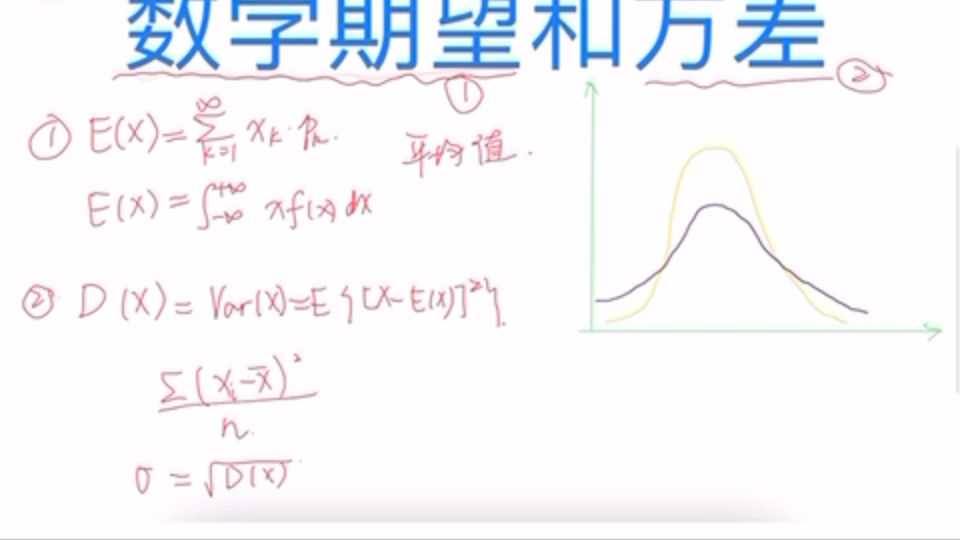 数学期望和方差
① ②
① E(X)=∑_{k=1}^{∞} x_k·p_k. 平均值.
E(X)=∫_{-∞}^{+∞} xf(x)dx
② D(X)=Var(X)=E{[X-E(X)]²}.
∑(x_i-x̄)²
n.
σ=√D(X)